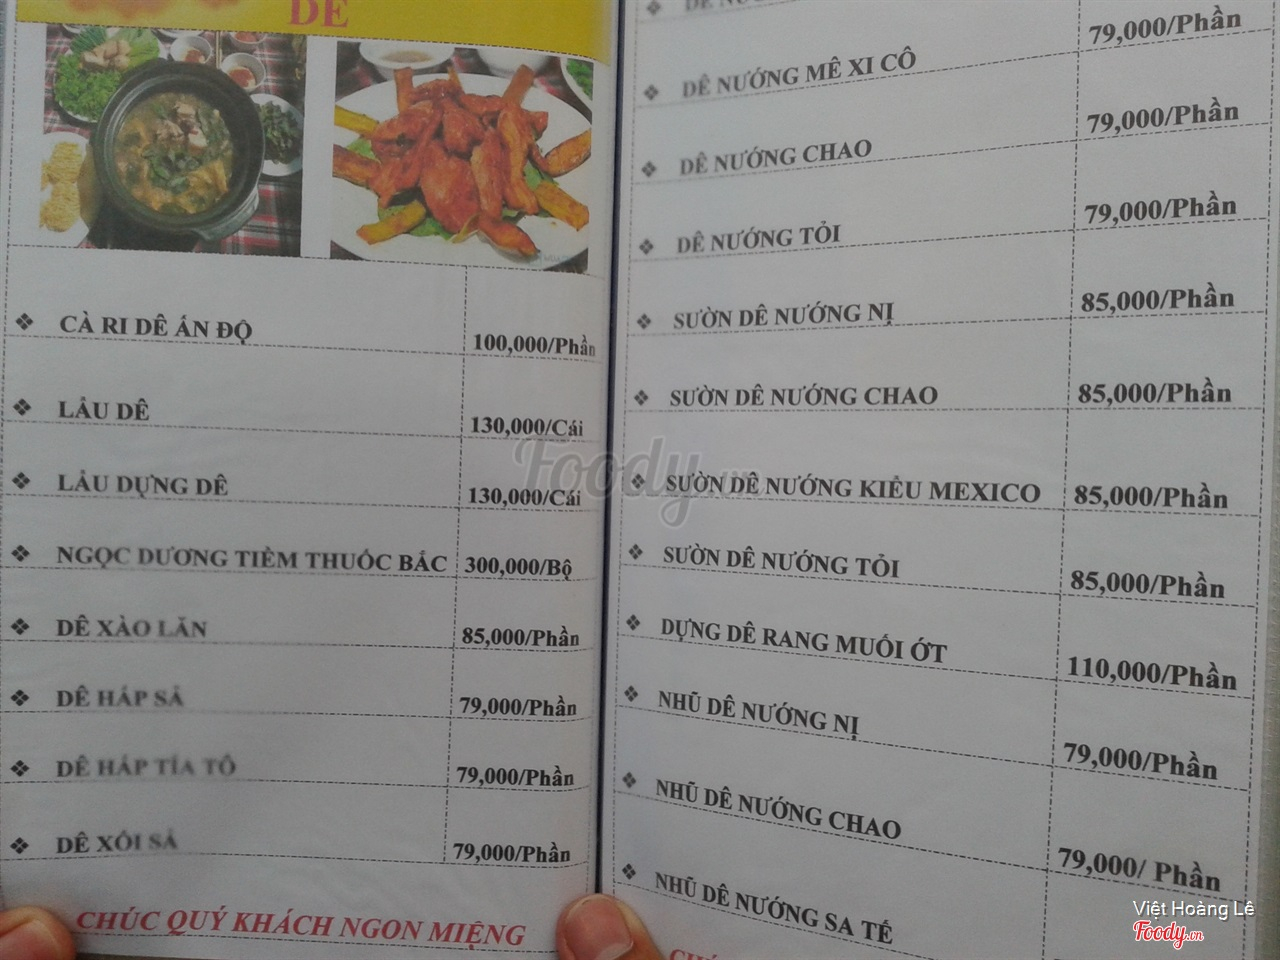 DÊ
❖ CÀ RI DÊ ẤN ĐỘ 100,000/Phần
❖ LẨU DÊ 130,000/Cái
❖ LẨU DỰNG DÊ 130,000/Cái
❖ NGỌC DƯƠNG TIỀM THUỐC BẮC 300,000/Bộ
❖ DÊ XÀO LĂN 85,000/Phần
❖ DÊ HẤP SẢ 79,000/Phần
❖ DÊ HẤP TÍA TÔ 79,000/Phần
❖ DÊ XÔI SẢ 79,000/Phần
CHÚC QUÝ KHÁCH NGON MIỆNG
79,000/Phần
❖ DÊ NƯỚNG MÊ XI CÔ 79,000/Phần
❖ DÊ NƯỚNG CHAO 79,000/Phần
❖ DÊ NƯỚNG TỎI 85,000/Phần
❖ SƯỜN DÊ NƯỚNG NỊ 85,000/Phần
❖ SƯỜN DÊ NƯỚNG CHAO
❖ SƯỜN DÊ NƯỚNG KIỂU MEXICO 85,000/Phần
❖ SƯỜN DÊ NƯỚNG TỎI 85,000/Phần
❖ DỰNG DÊ RANG MUỐI ỚT 110,000/Phần
❖ NHŨ DÊ NƯỚNG NỊ 79,000/Phần
❖ NHŨ DÊ NƯỚNG CHAO 79,000/ Phần
❖ NHŨ DÊ NƯỚNG SA TẾ
Foody.vn
Việt Hoàng Lê
Foody.vn